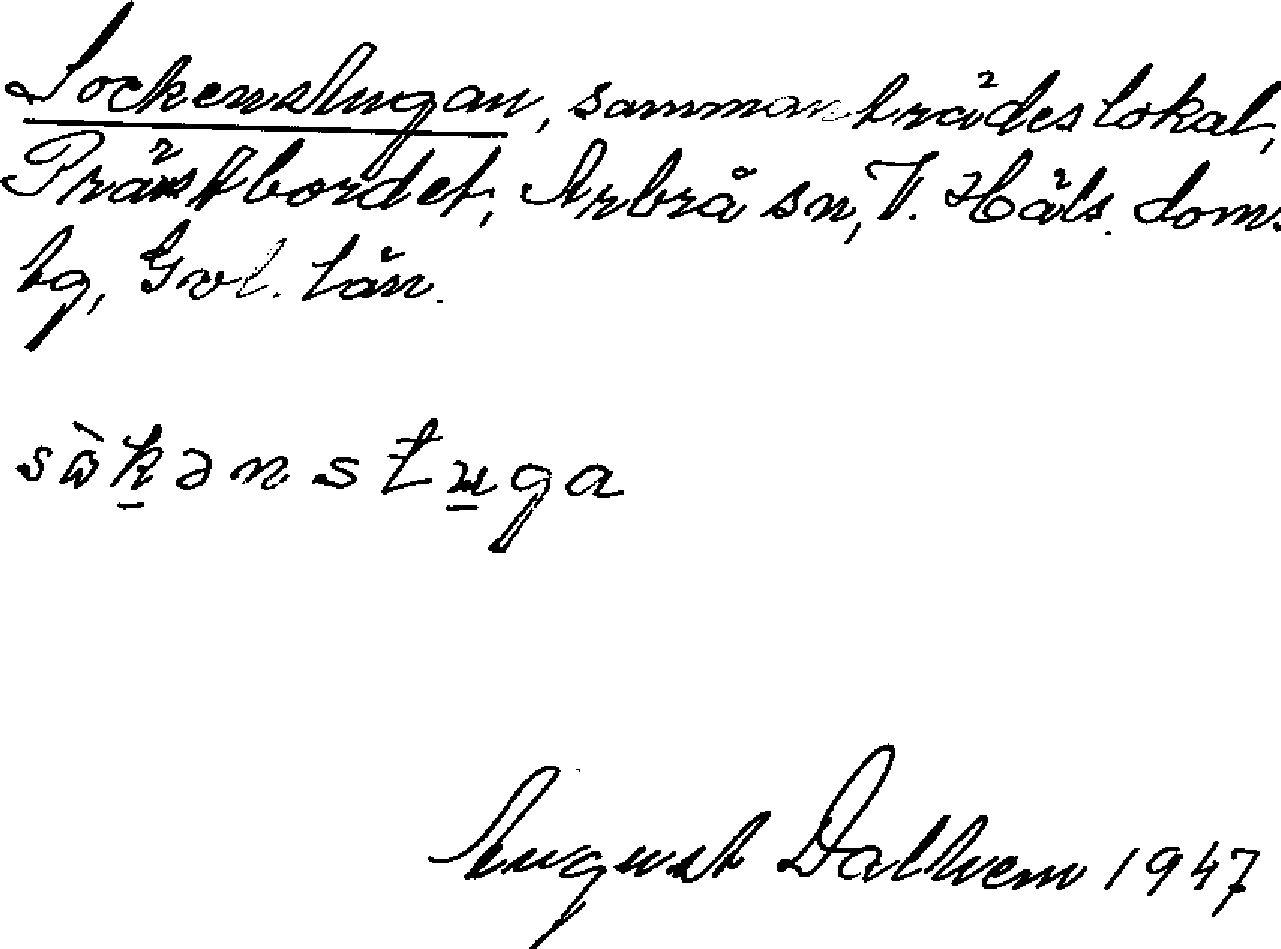 Sockenstugan, sammanträdeslokal,
Prästbordet, Arbrå sn, V. Häls. dom-
sg, Gvl. län.
sɷ̀k̠ənstu̠ga
August Dalhem 1947